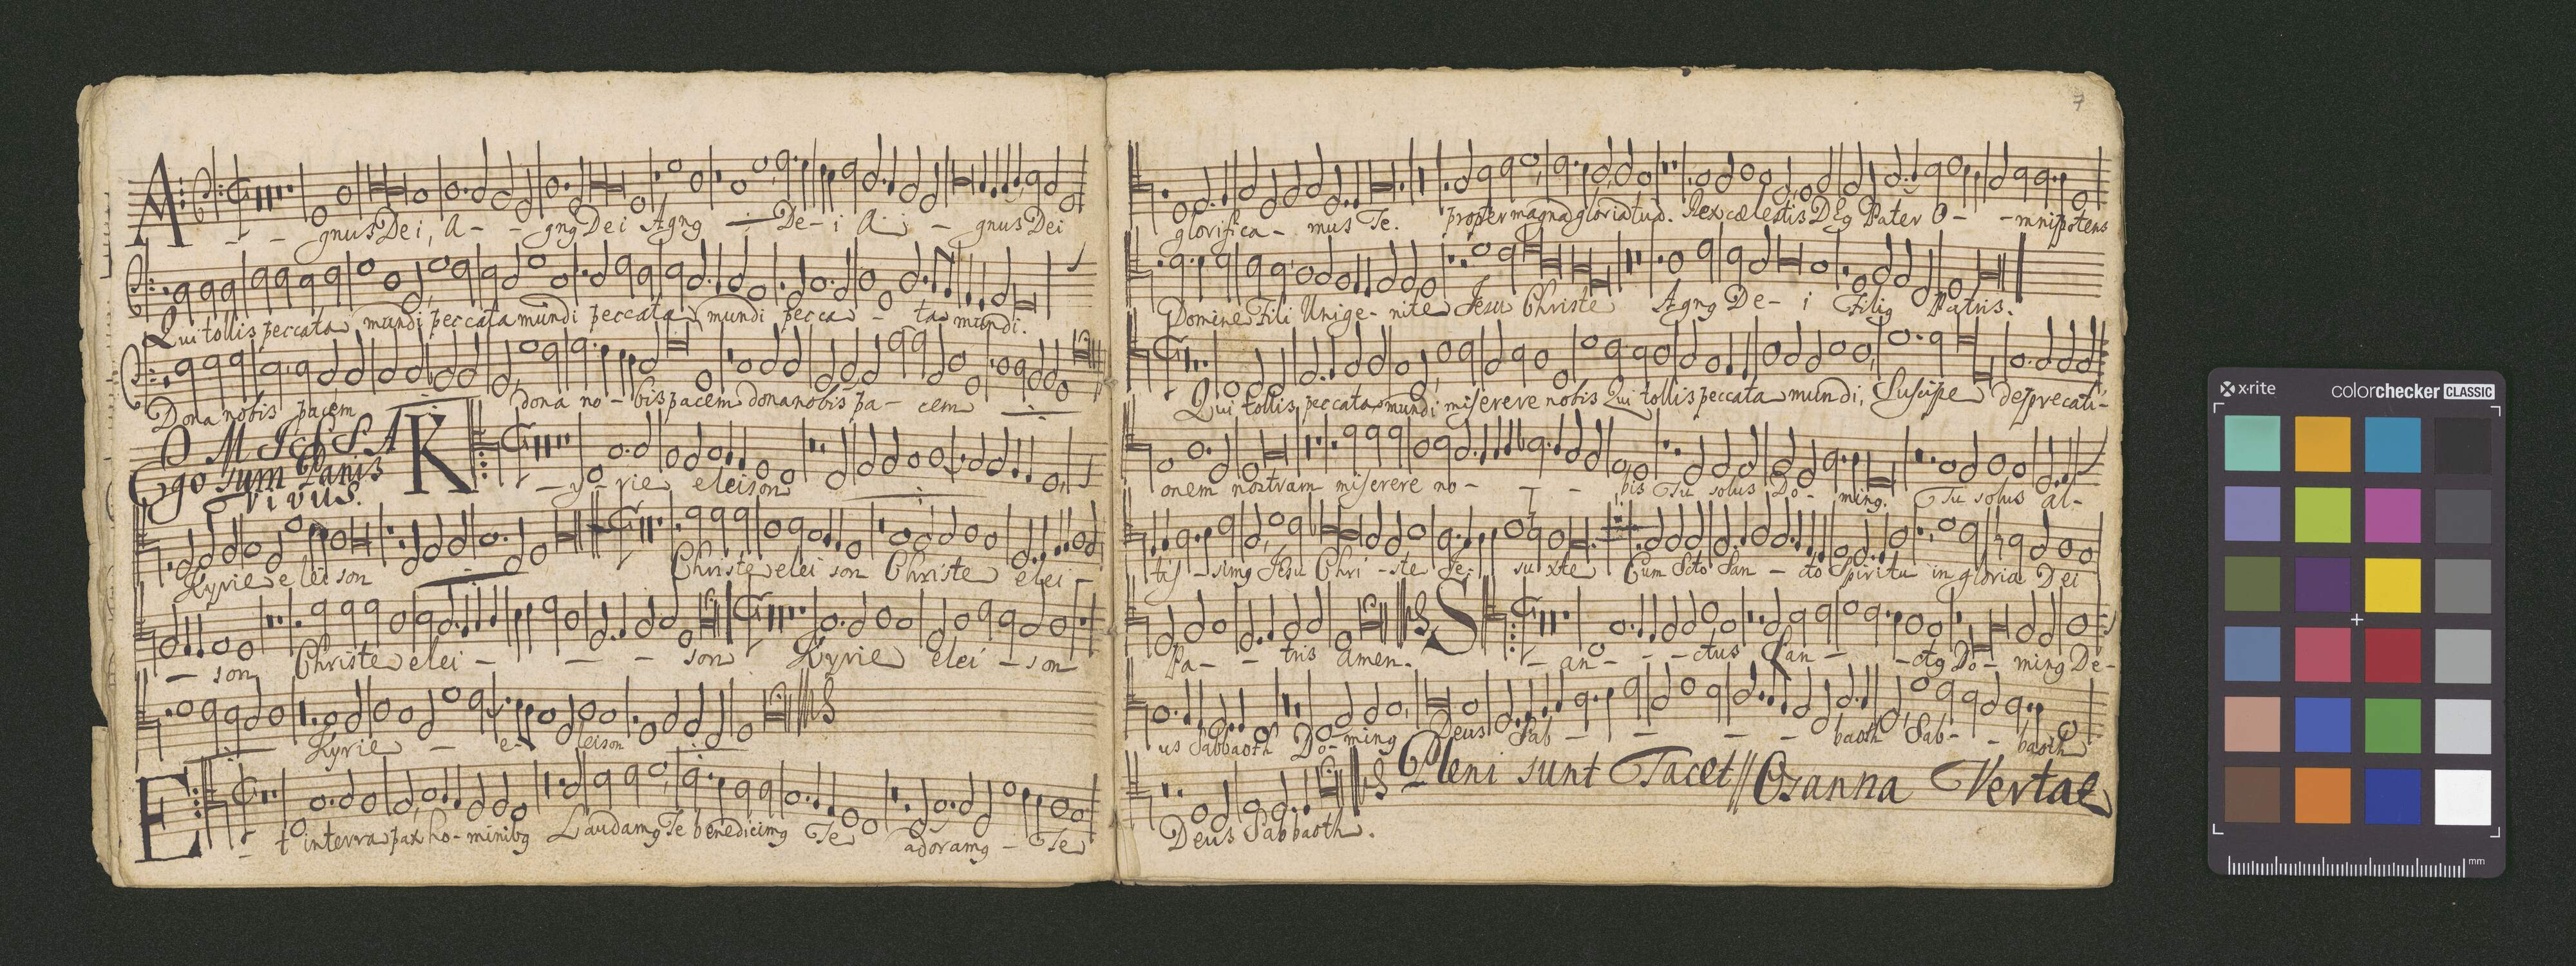 A - - gnus Dei, A - - gng Dei Agng - De - i A - gnus Dei
Qui tollis peccata mundi peccata mundi peccata mundi pecca - ta mundi.
Dona nobis pacem dona no - bis pacem dona nobis pa - cem
MISSA
Ego sum Panis
Vivus.
K - y - rie eleison
Kyrie eleison Christe elei son Christe elei -
- son Christe elei - - - son Kyrie elei - son
Kyrie - e - leison
E - t in terra pax ho - minibg Laudamg Te benedicimg Te adoramg - Te
7
glorifica - mus Te. propter magnã gloriã tuã. Rex cælestis Deg Pater O - - mnipotens
Domine Fili Unige - nite Jesu Christe Agng De - i Filig Patris.
Qui tollis peccata mundi miserere nobis Qui tollis peccata mundi, Suscipe deprecati -
onem nostram miserere no - - - bis Tu solus Do - ming. Tu solus al -
tis - simg Jesu Chri - ste Je - su xte Cum Scto San - cto Spiritu in gloria Dei
Pa - - tris Amen. S - an - - - ctus San - - ctg Do - ming De -
us Sabbaoth Do - ming Deus Sab - - - - baoth Sab - - baoth
Deus Sabbaoth. Pleni sunt Tacet // Osanna Vertae
x·rite colorchecker CLASSIC
mm